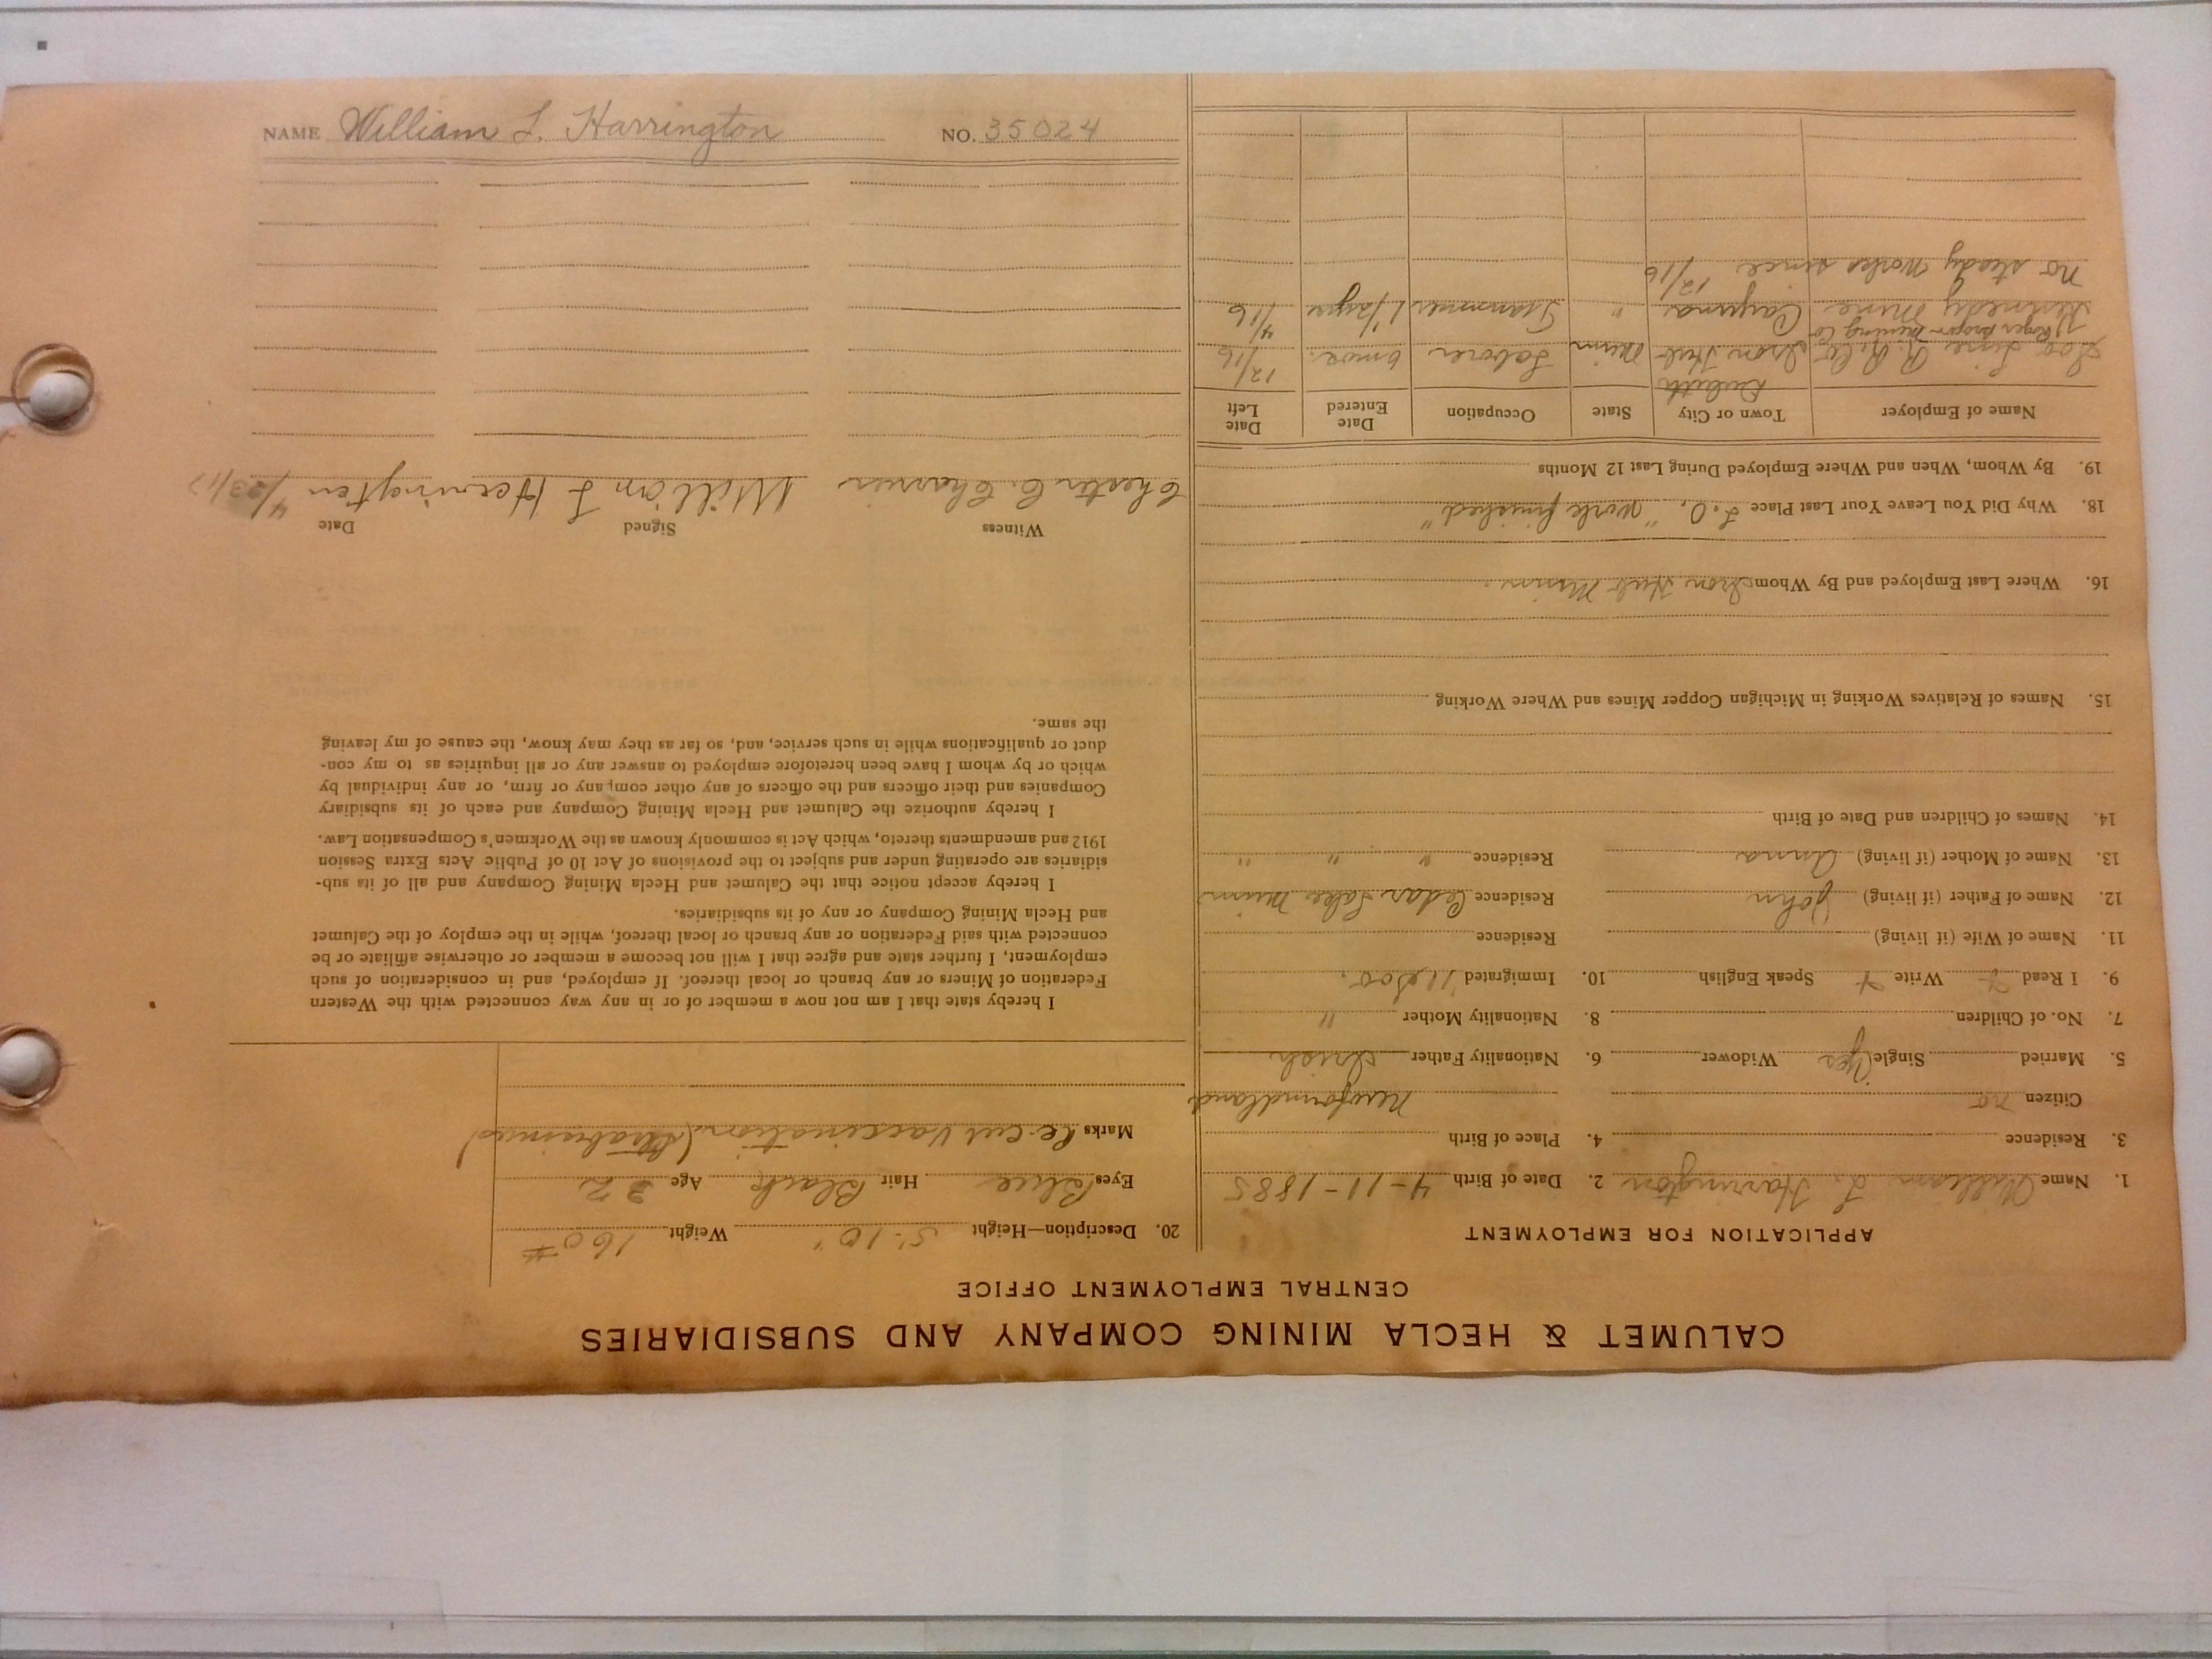 NAME William L. Harrington NO. 35024
CALUMET & HECLA MINING COMPANY AND SUBSIDIARIES
CENTRAL EMPLOYMENT OFFICE
APPLICATION FOR EMPLOYMENT
1. Name William L. Harrington 2. Date of Birth 4-11-1885
3. Residence 4. Place of Birth
Citizen no Newfoundland
5. Married Single Yes Widower 6. Nationality Father Irish
7. No. of Children 8. Nationality Mother "
9. I Read Write Speak English 10. Immigrated
11. Name of Wife (if living) Residence
12. Name of Father (if living) John Residence Cedar Lake Minn
13. Name of Mother (if living) Anna Residence " " "
14. Names of Children and Date of Birth
15. Names of Relatives Working in Michigan Copper Mines and Where Working
16. Where Last Employed and By Whom Iron Hub Minn.
18. Why Did You Leave Your Last Place L.O. "work finished"
19. By Whom, When and Where Employed During Last 12 Months
Name of Employer Town or City State Occupation Date Entered Date Left
Duluth
Soo Line R.R. Co Iron Hub Minn Laborer 6 mos. 12/16
Roger Brown Mining Co
Kennedy Mine Cuyuna " Trammer 1 1/2 yrs 4/16
No steady work since 12/16
20. Description—Height 5'-10" Weight 160#
Eyes Blue Hair Black Age 32
Marks Vaccination
I hereby state that I am not now a member of or in any way connected with the Western
Federation of Miners or any branch or local thereof. If employed, and in consideration of such
employment, I further state and agree that I will not become a member or otherwise affiliate or be
connected with said Federation or any branch or local thereof, while in the employ of the Calumet
and Hecla Mining Company or any of its subsidiaries.
I hereby accept notice that the Calumet and Hecla Mining Company and all of its sub-
sidiaries are operating under and subject to the provisions of Act 10 of Public Acts Extra Session
1912 and amendments thereto, which Act is commonly known as the Workmen's Compensation Law.
I hereby authorize the Calumet and Hecla Mining Company and each of its subsidiary
Companies and their officers and the officers of any other company or firm, or any individual by
which or by whom I have been heretofore employed to answer any or all inquiries as to my con-
duct or qualifications while in such service, and, so far as they may know, the cause of my leaving
the same.
Witness Signed Date
Chester C. William L Harrington 4/23/17